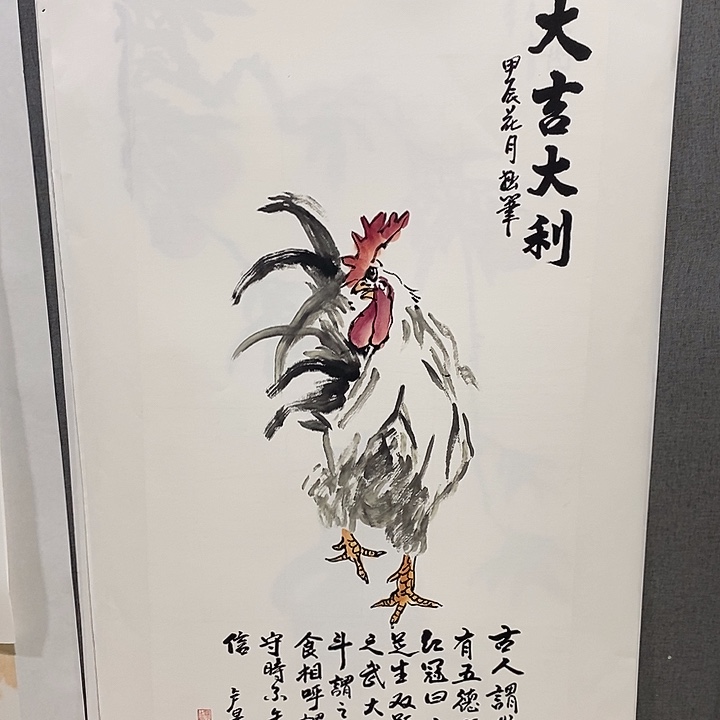 大吉大利
甲辰花月
筆
古人謂
有五德
红冠曰
足生双
之武大
斗謂之
食相呼
守時不
信